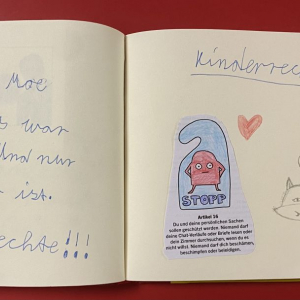 Moe
war
und nur
ist.
echte!!!
Kinderrec
STOPP
Artikel 16
Du und deine persönlichen Sachen
sollen geschützt werden. Niemand darf
deine Chat-Verläufe oder Briefe lesen oder
dein Zimmer durchsuchen, wenn du es
nicht willst. Niemand darf dich beschämen,
beschimpfen oder beleidigen.